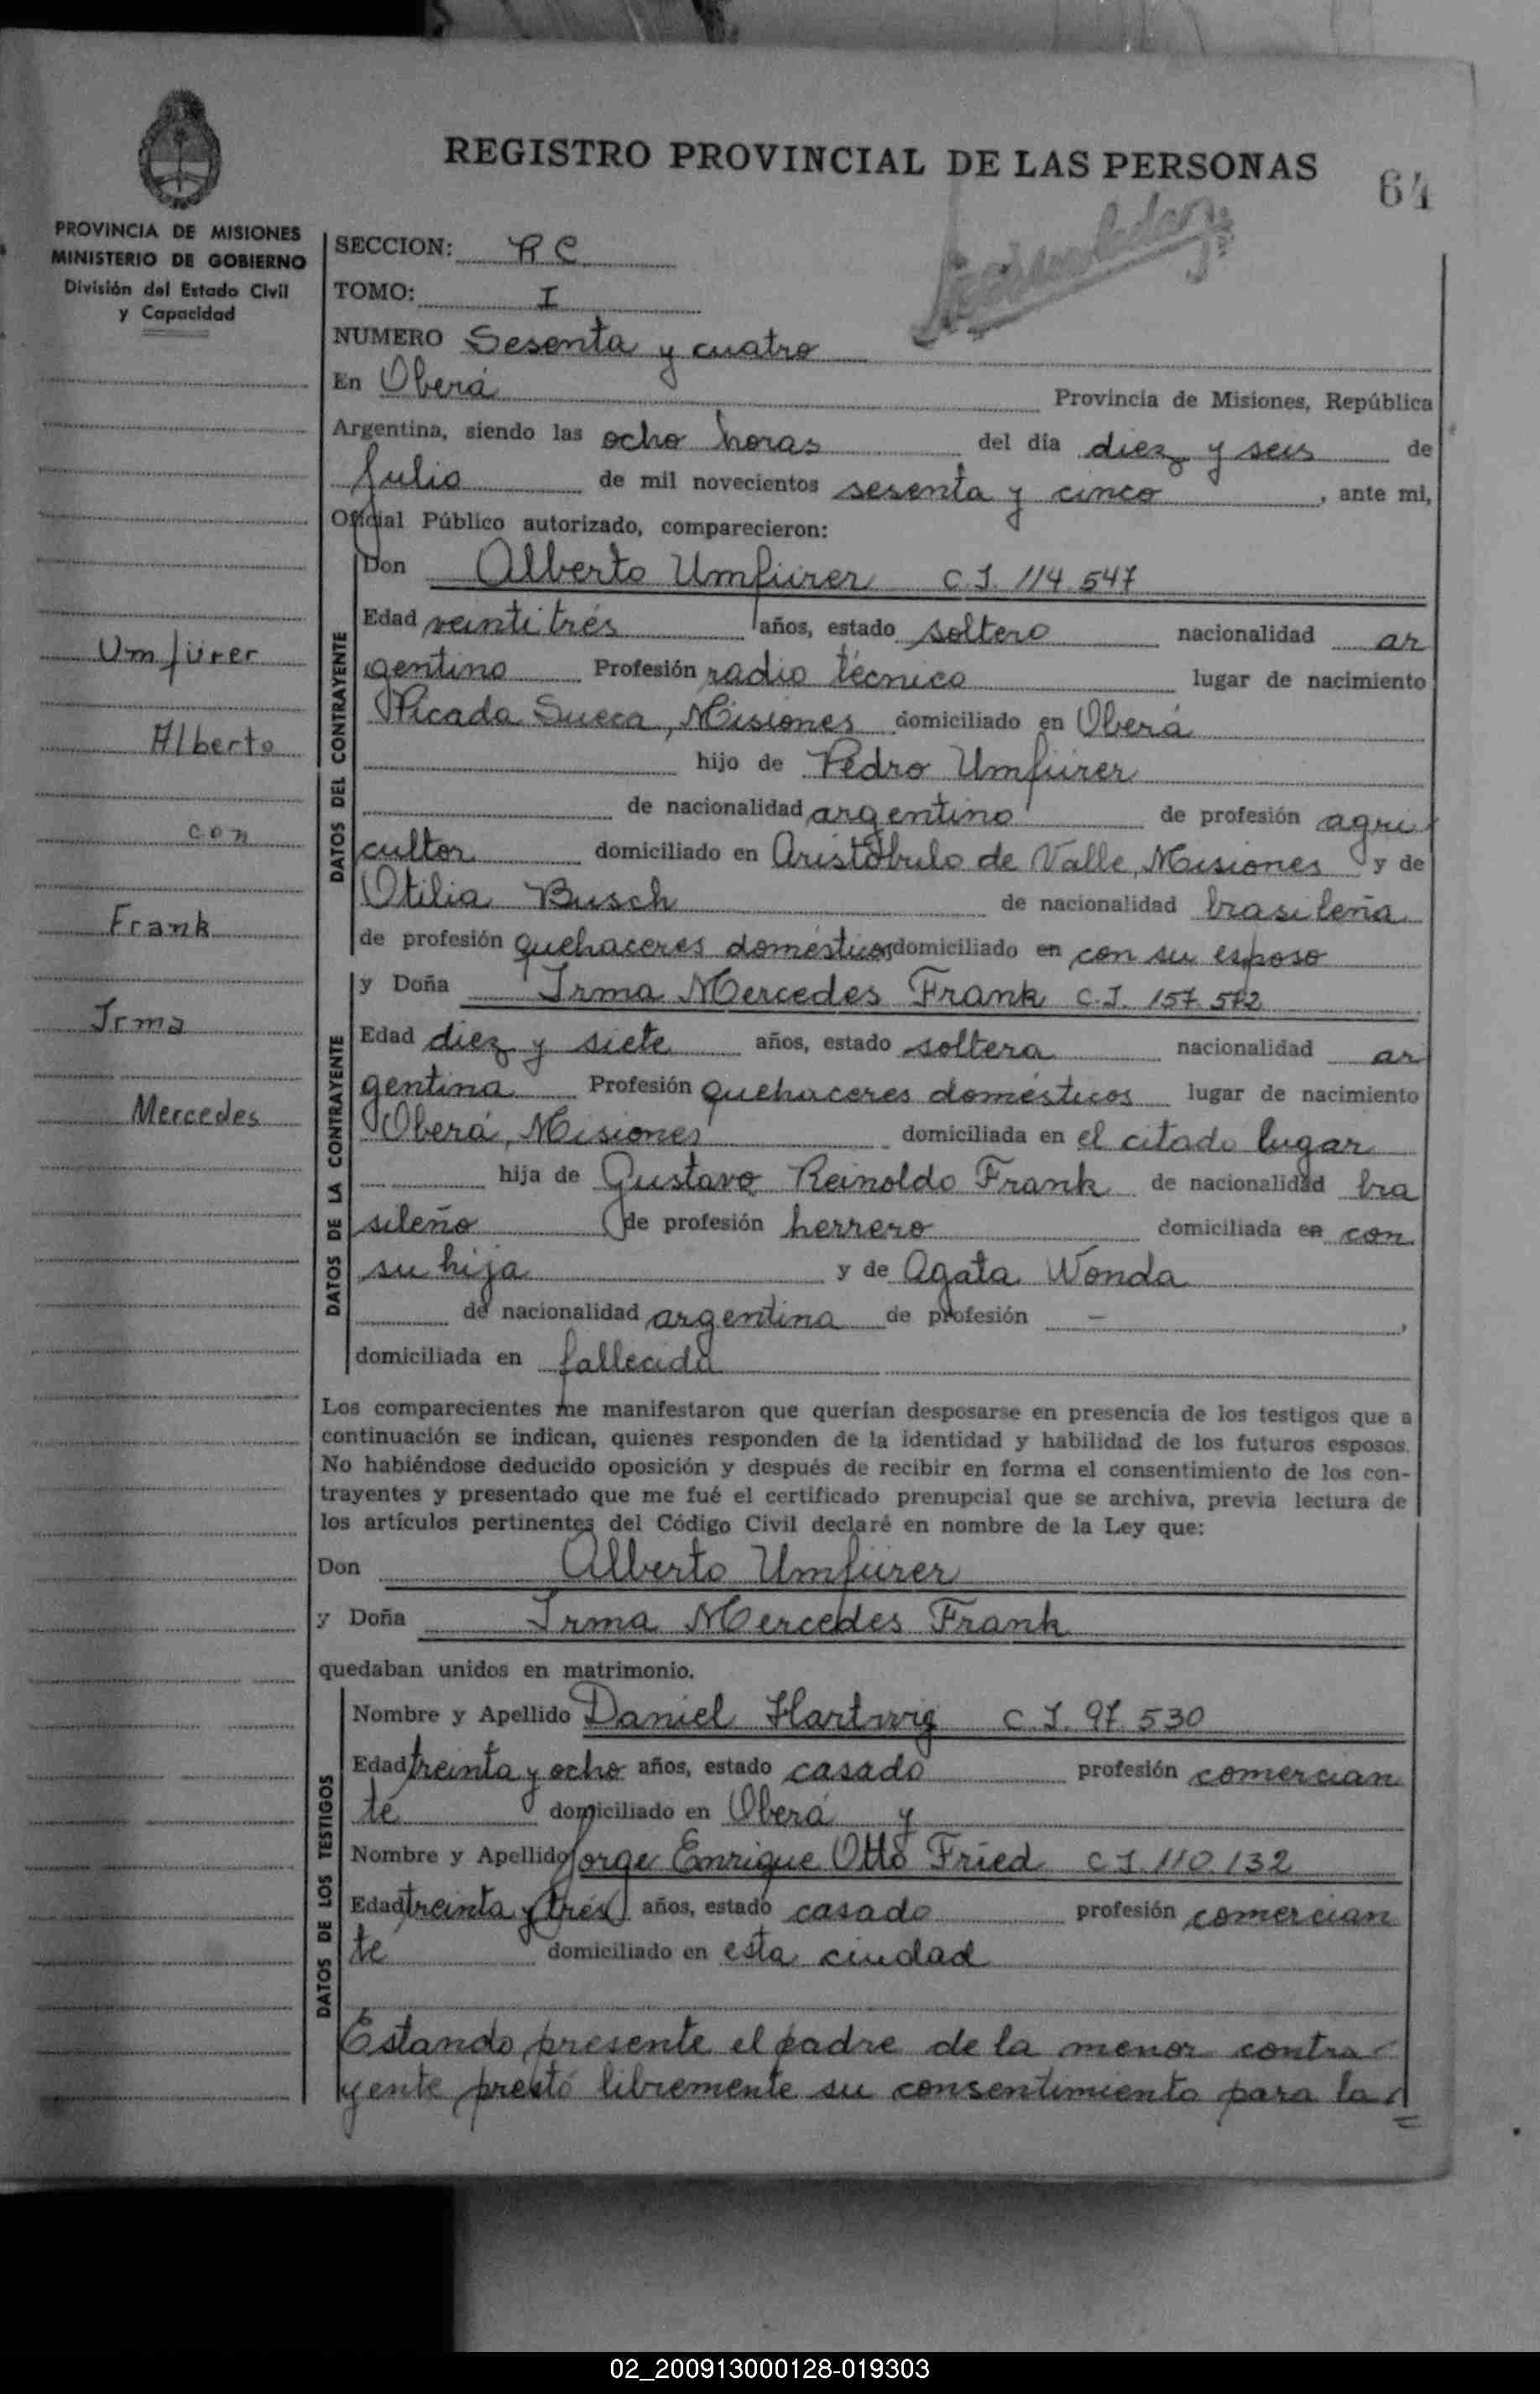 REGISTRO PROVINCIAL DE LAS PERSONAS
64
PROVINCIA DE MISIONES
MINISTERIO DE GOBIERNO
División del Estado Civil
y Capacidad
Umfürer
Alberto
con
Frank
Irma
Mercedes
SECCION: R C
TOMO: I
NUMERO Sesenta y cuatro
En Oberá Provincia de Misiones, República
Argentina, siendo las ocho horas del día diez y seis de
Julio de mil novecientos sesenta y cinco, ante mi,
Oficial Público autorizado, comparecieron:
DATOS DEL CONTRAYENTE
Don Alberto Umfürer C.I. 114.547
Edad veintitrés años, estado soltero nacionalidad ar
gentino Profesión radio técnico lugar de nacimiento
Picada Sueca, Misiones domiciliado en Oberá
hijo de Pedro Umfürer
de nacionalidad argentino de profesión agri
cultor domiciliado en Aristóbulo de Valle, Misiones y de
Otilia Busch de nacionalidad brasileña
de profesión quehaceres domésticos domiciliado en con su esposo
DATOS DE LA CONTRAYENTE
y Doña Irma Mercedes Frank C.I. 157.572
Edad diez y siete años, estado soltera nacionalidad ar
gentina Profesión quehaceres domésticos lugar de nacimiento
Oberá, Misiones domiciliada en el citado lugar
hija de Gustavo Reinoldo Frank de nacionalidad bra
sileño de profesión herrero domiciliada en con
su hija y de Agata Wonda
de nacionalidad argentina de profesión —,
domiciliada en fallecida
Los comparecientes me manifestaron que querían desposarse en presencia de los testigos que a
continuación se indican, quienes responden de la identidad y habilidad de los futuros esposos.
No habiéndose deducido oposición y después de recibir en forma el consentimiento de los con-
trayentes y presentado que me fué el certificado prenupcial que se archiva, previa lectura de
los artículos pertinentes del Código Civil declaré en nombre de la Ley que:
Don Alberto Umfürer
y Doña Irma Mercedes Frank
quedaban unidos en matrimonio.
DATOS DE LOS TESTIGOS
Nombre y Apellido Daniel Hartwig C.I. 97.530
Edad treinta y ocho años, estado casado profesión comercian
te domiciliado en Oberá y
Nombre y Apellido Jorge Enrique Otto Fried C.I. 110.132
Edad treinta y (trés) años, estado casado profesión comercian
te domiciliado en esta ciudad
Estando presente el padre de la menor contra
yente prestó libremente su consentimiento para la
02_200913000128-019303